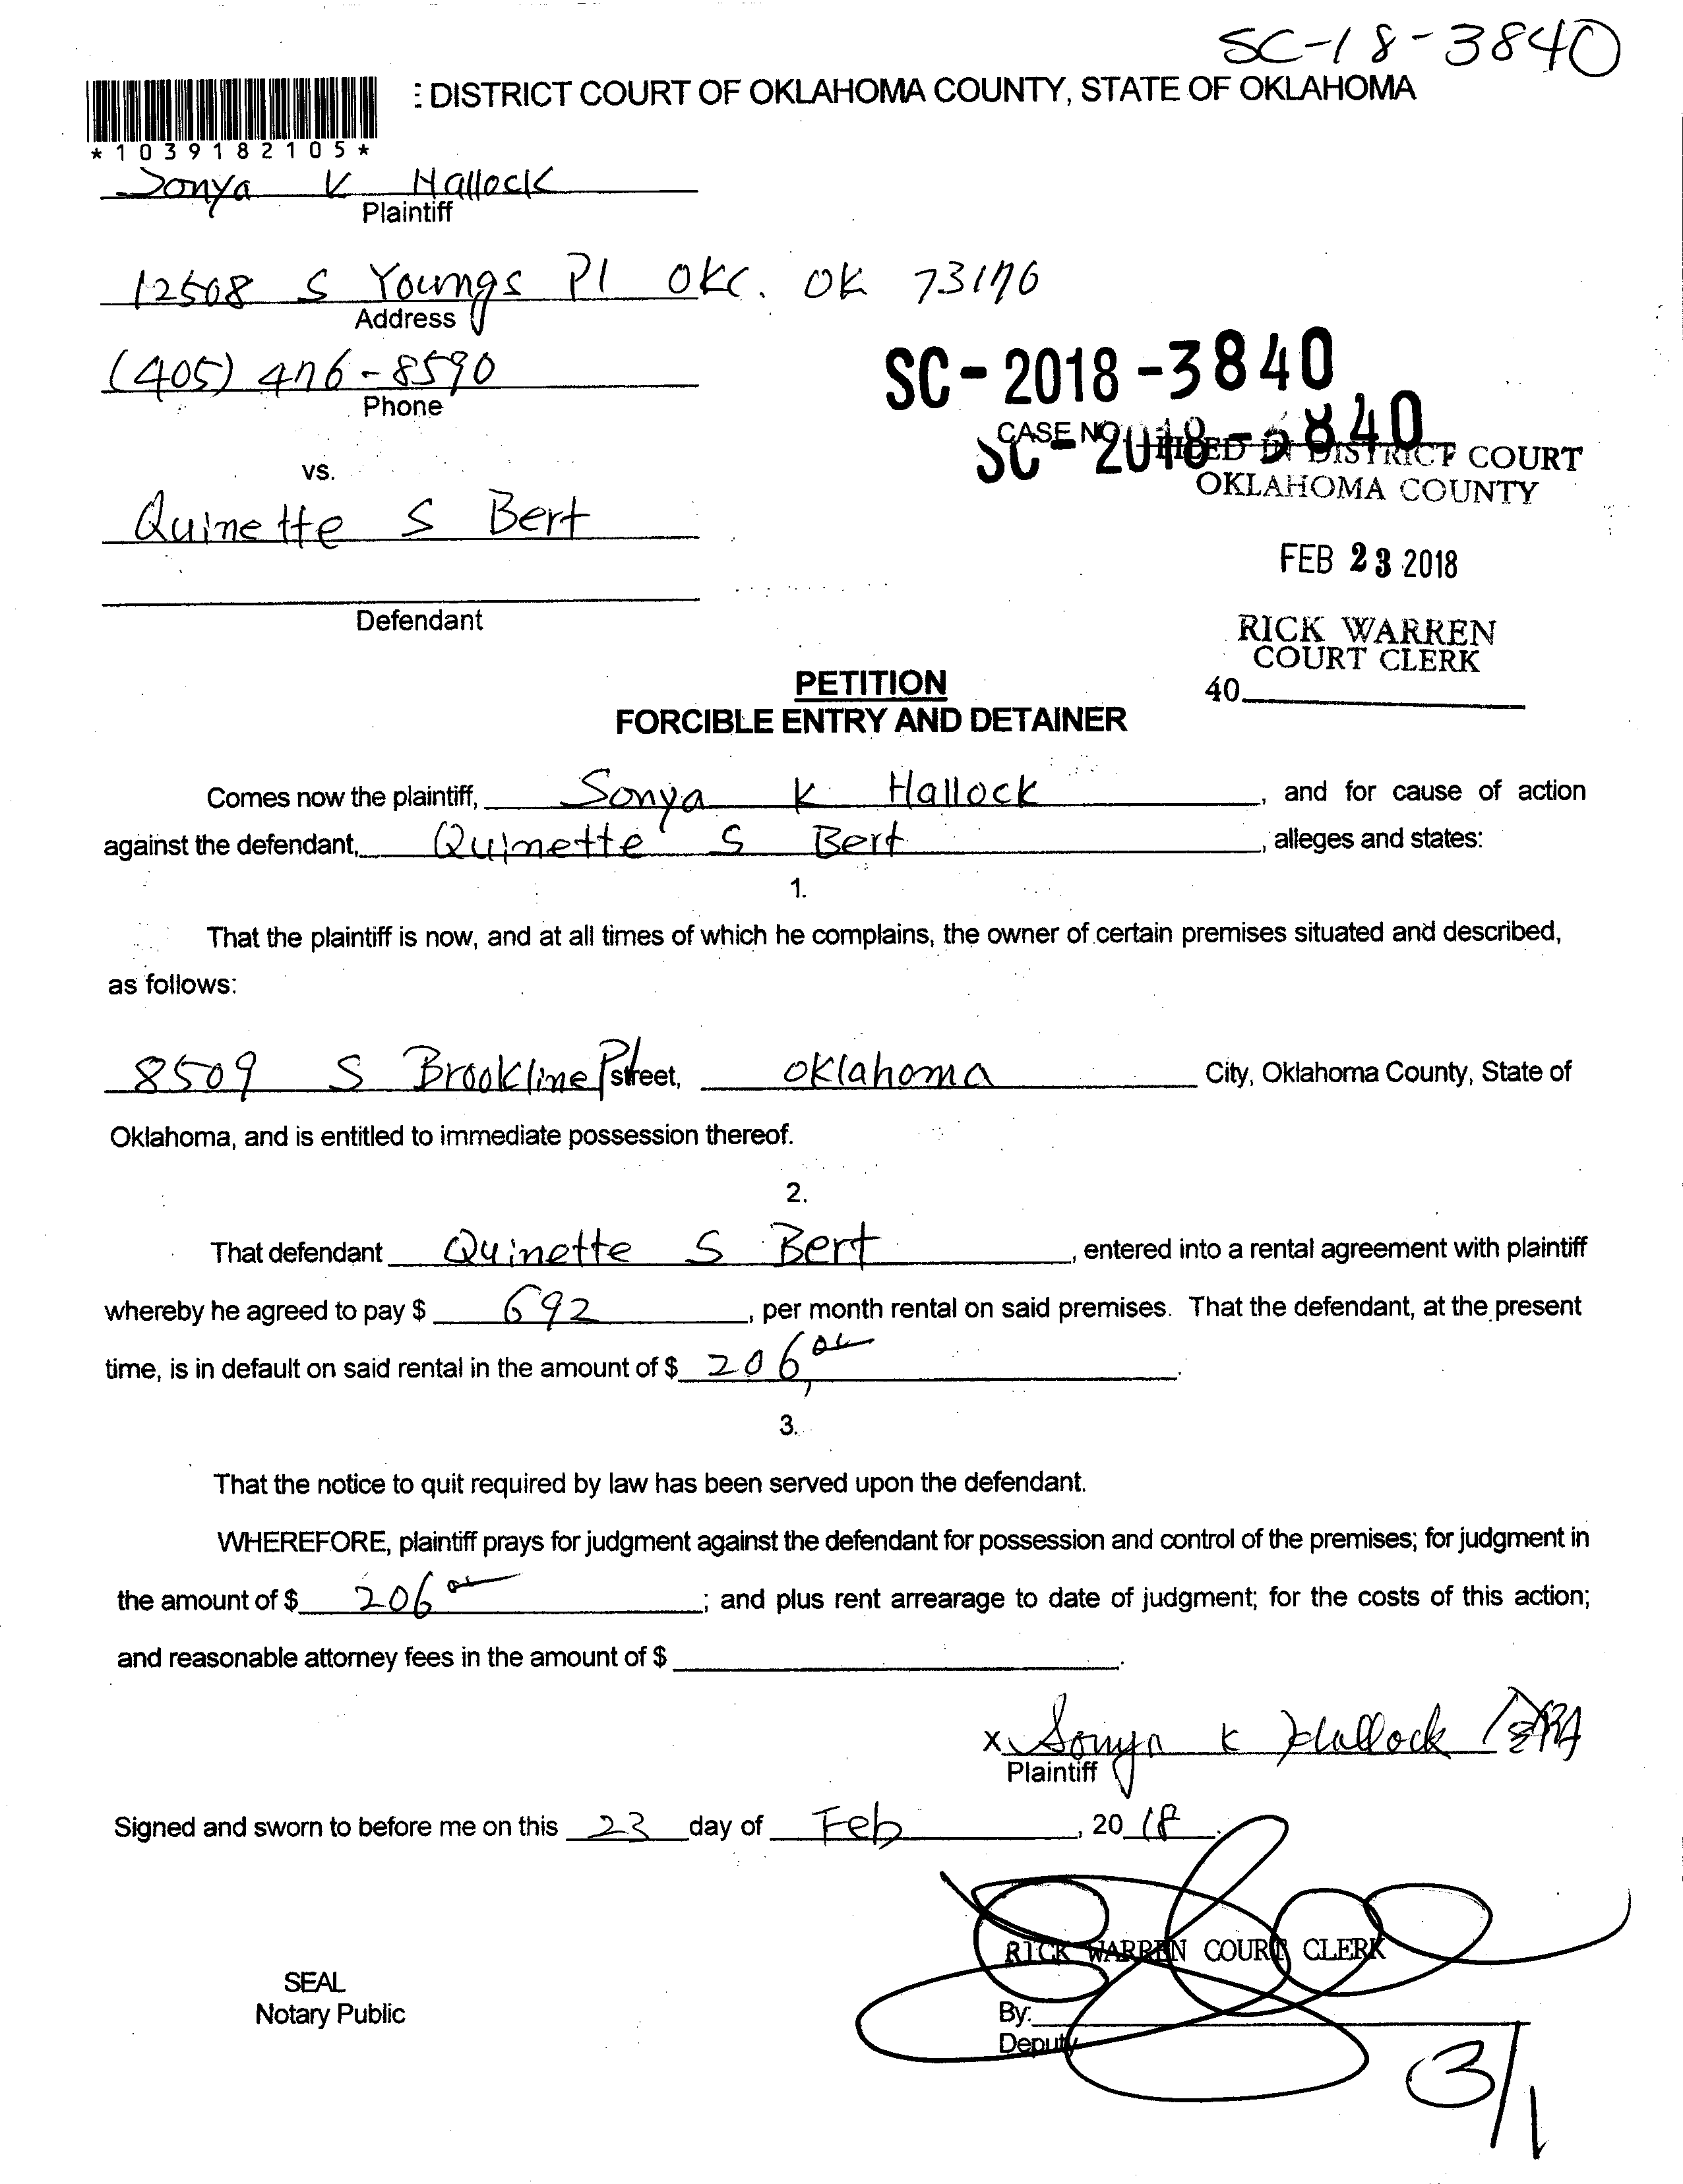 SC-18-3840
: DISTRICT COURT OF OKLAHOMA COUNTY, STATE OF OKLAHOMA
*1039182105*
Sonya K Hallock
Plaintiff
12508 S Youngs Pl OKC. OK 73170
Address
(405) 476-8590
Phone
SC-2018-3840
CASE NO.
SC-2018-3840
FILED IN DISTRICT COURT
OKLAHOMA COUNTY
vs.
Quinette S Bert
FEB 23 2018
Defendant
RICK WARREN
COURT CLERK
40
PETITION
FORCIBLE ENTRY AND DETAINER
Comes now the plaintiff, Sonya K Hallock, and for cause of action
against the defendant, Quinette S Bert, alleges and states:
1.
That the plaintiff is now, and at all times of which he complains, the owner of certain premises situated and described,
as follows:
8509 S Brookline Pl street, Oklahoma City, Oklahoma County, State of
Oklahoma, and is entitled to immediate possession thereof.
2.
That defendant Quinette S Bert, entered into a rental agreement with plaintiff
whereby he agreed to pay $ 692, per month rental on said premises. That the defendant, at the present
time, is in default on said rental in the amount of $ 206 00.
3.
That the notice to quit required by law has been served upon the defendant.
WHEREFORE, plaintiff prays for judgment against the defendant for possession and control of the premises; for judgment in
the amount of $ 206 00; and plus rent arrearage to date of judgment; for the costs of this action;
and reasonable attorney fees in the amount of $
x Sonya K Hallock
Plaintiff
Signed and sworn to before me on this 23 day of Feb, 2018.
RICK WARREN COURT CLERK
SEAL
Notary Public
By:
Deputy
3/1